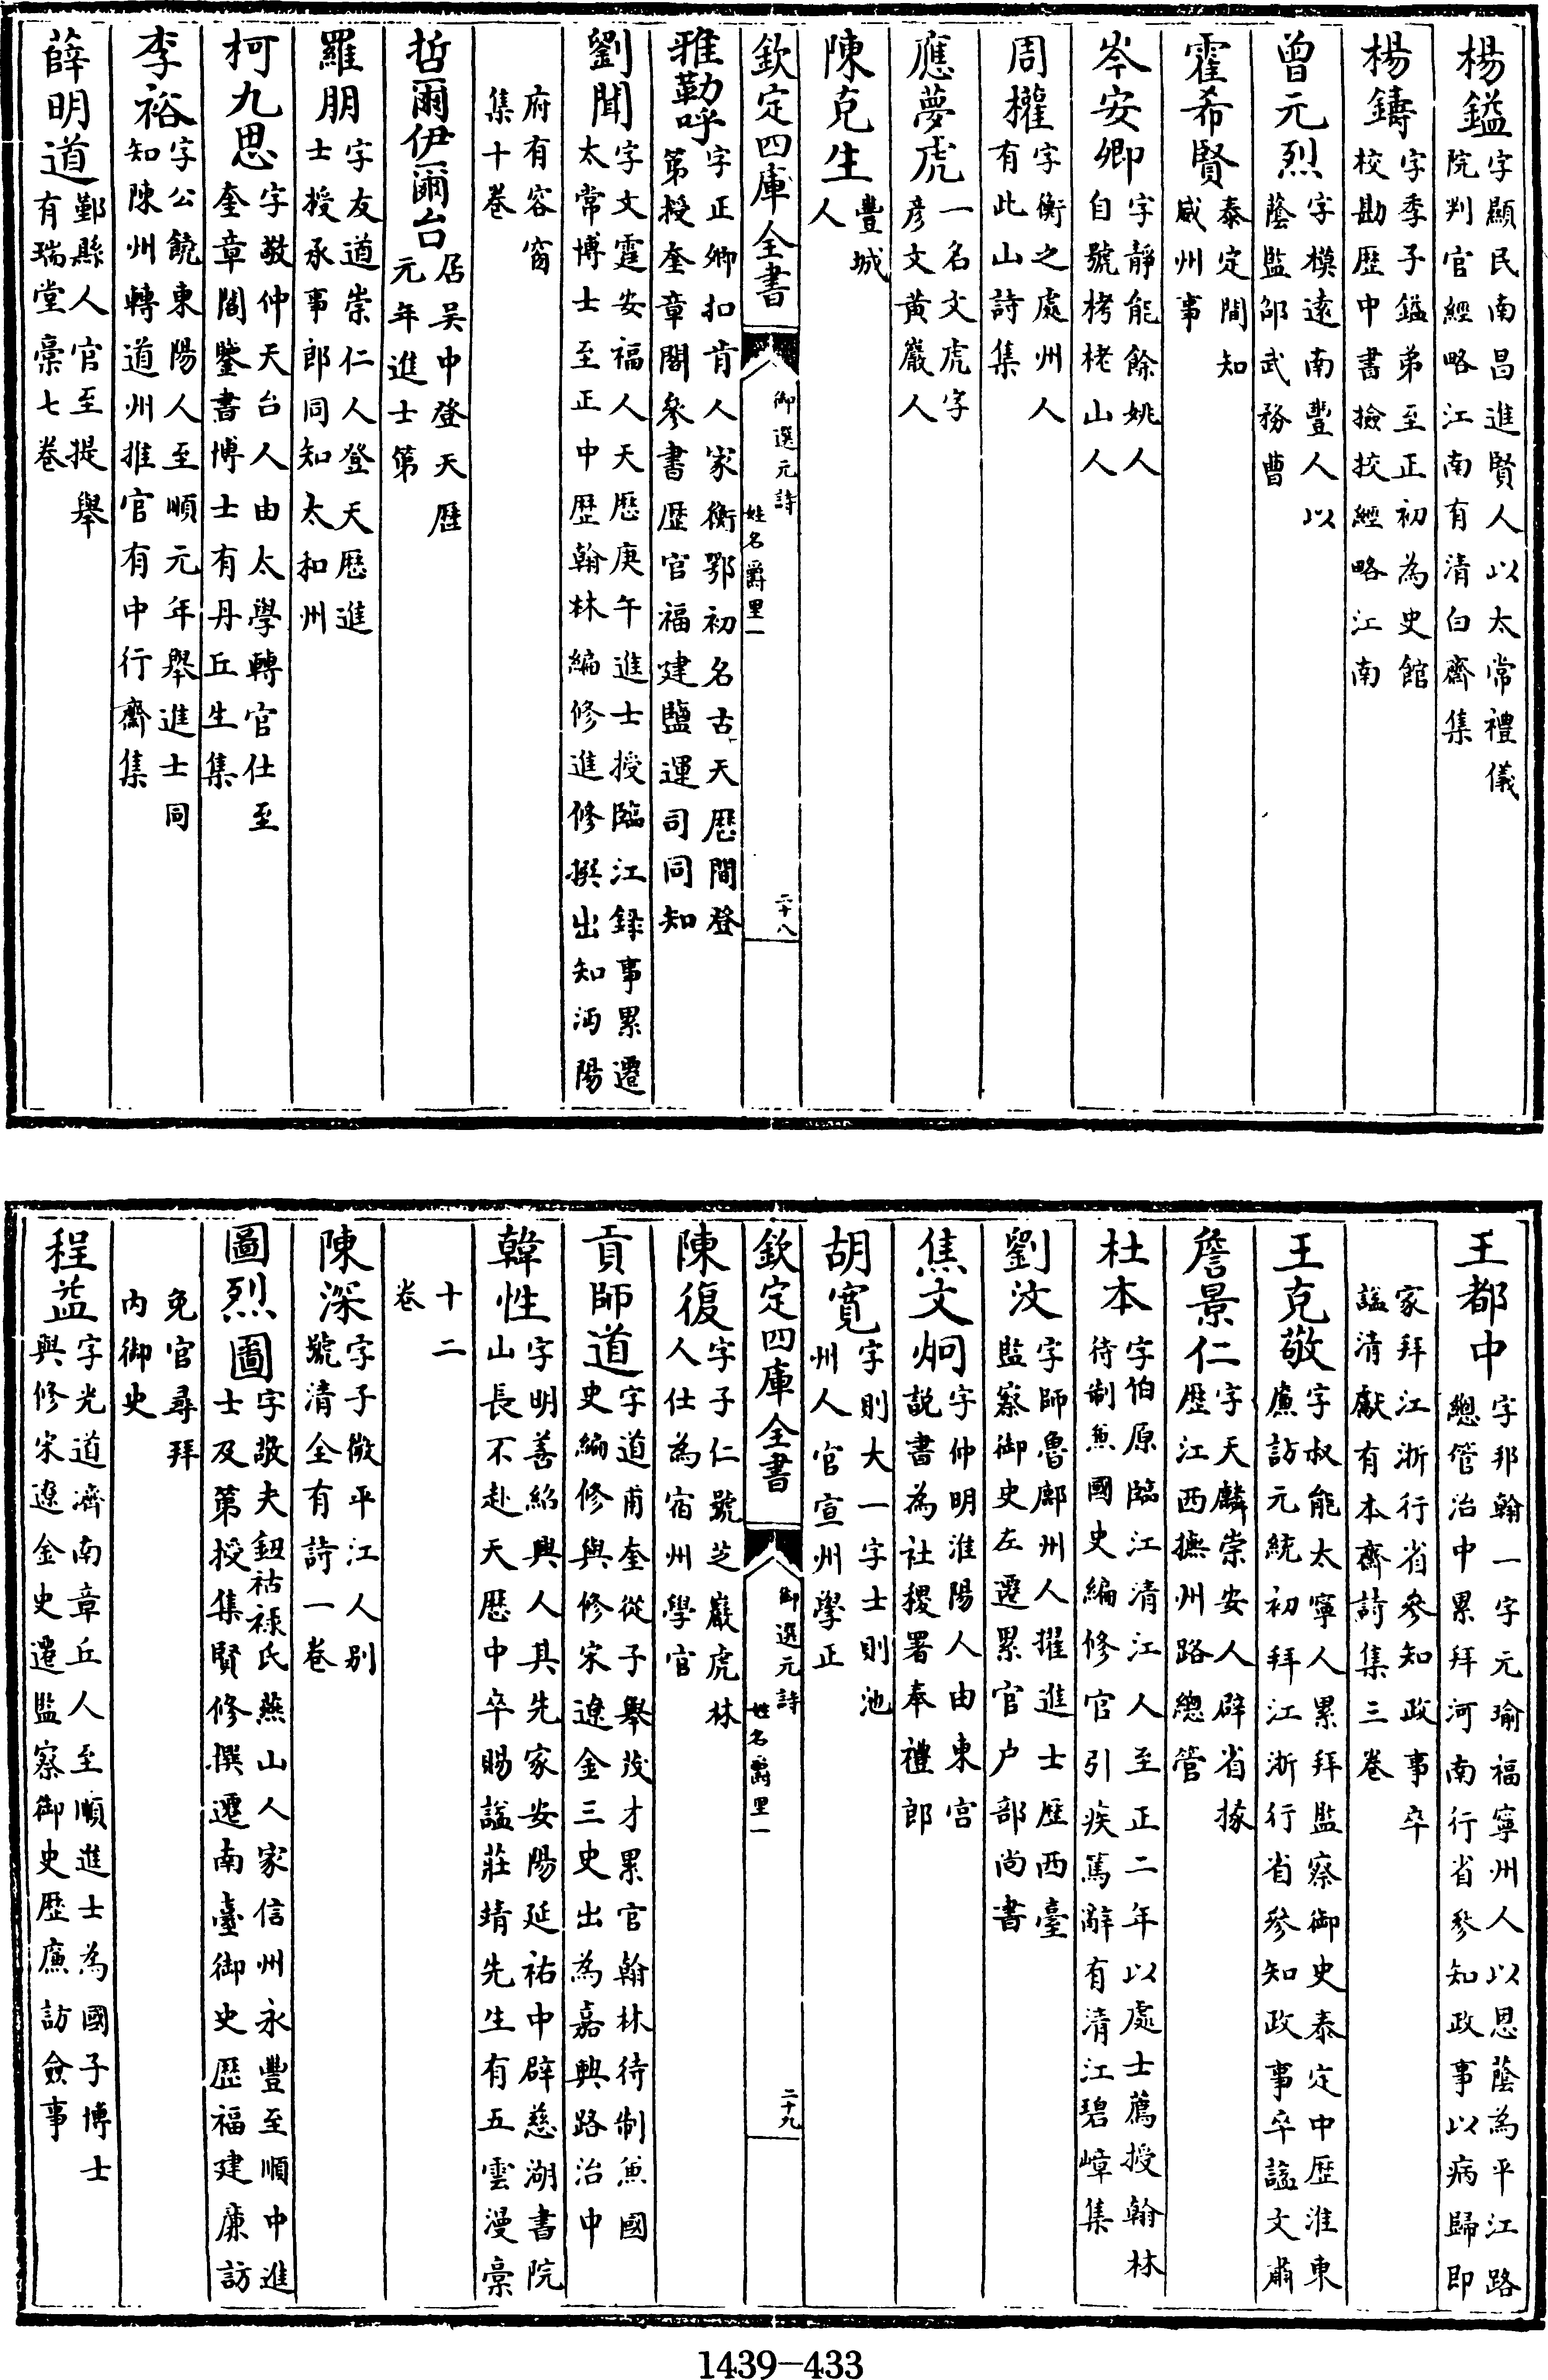 楊鎰字顯民南昌進賢人以太常禮儀院判官經略江南有清白齋集
楊鑄字季子鎰弟至正初為史館校勘歴中書撿挍經略江南
曾元烈字模遠南豐人以蔭監邵武務曹
霍希賢泰定間知威州事
岑安卿字靜能餘姚人自號栲栳山人
周權字衡之處州人有此山詩集
應夢虎一名文虎字彦文黄巖人
陳克生豐城人
欽定四庫全書 御選元詩 姓名爵里一 二十八
雅勒呼字正卿扣肯人家衡鄂初名古天厯間登第授奎章閣參書歴官福建鹽運司同知
劉聞字文霆安福人天厯庚午進士授臨江録事累遷太常博士至正中歴翰林編修進修撰出知沔陽
府有容窗集十卷
哲爾伊爾台居吴中登天厯元年進士第
羅朋字友道崇仁人登天厯進士授承事郎同知太和州
柯九思字敬仲天台人由太學轉官仕至奎章閣鑒書博士有丹丘生集
李裕字公饒東陽人至順元年舉進士同知陳州轉道州推官有中行齋集
薛明道鄞縣人官至提舉有瑞堂稾七卷
王都中字邦翰一字元瑜福寧州人以恩蔭為平江路總管治中累拜河南行省參知政事以病歸即
家拜江浙行省參知政事卒諡清獻有本齋詩集三卷
王克敬字叔能太寧人累拜監察御史泰定中歴淮東廉訪元統初拜江浙行省參知政事卒諡文肅
詹景仁字天麟崇安人辟省掾歴江西撫州路總管
杜本字伯原臨江清江人至正二年以處士薦授翰林待制兼國史編修官引疾篤辭有清江碧嶂集
劉汶字師魯鄜州人擢進士歴西臺監察御史左遷累官户部尚書
焦文炯字仲明淮陽人由東宫説書為社稷署奉禮郎
胡寛字則大一字士則池州人官宣州學正
欽定四庫全書 御選元詩 姓名爵里一 二十九
陳復字子仁號芝巖虎林人仕為宿州學官
貢師道字道甫奎從子舉茂才累官翰林待制兼國史編修與修宋遼金三史出為嘉興路治中
韓性字明善紹興人其先家安陽延祐中辟慈湖書院山長不赴天厯中卒賜諡莊靖先生有五雲漫稾
十二卷
陳深字子微平江人别號清全有詩一卷
圖烈圖字敬夫鈕祜禄氏燕山人家信州永豐至順中進士及第授集賢修撰遷南臺御史歴福建廉訪
免官尋拜内御史
程益字光道濟南章丘人至順進士為國子博士與修宋遼金史遷監察御史歴廉訪僉事
1439—433